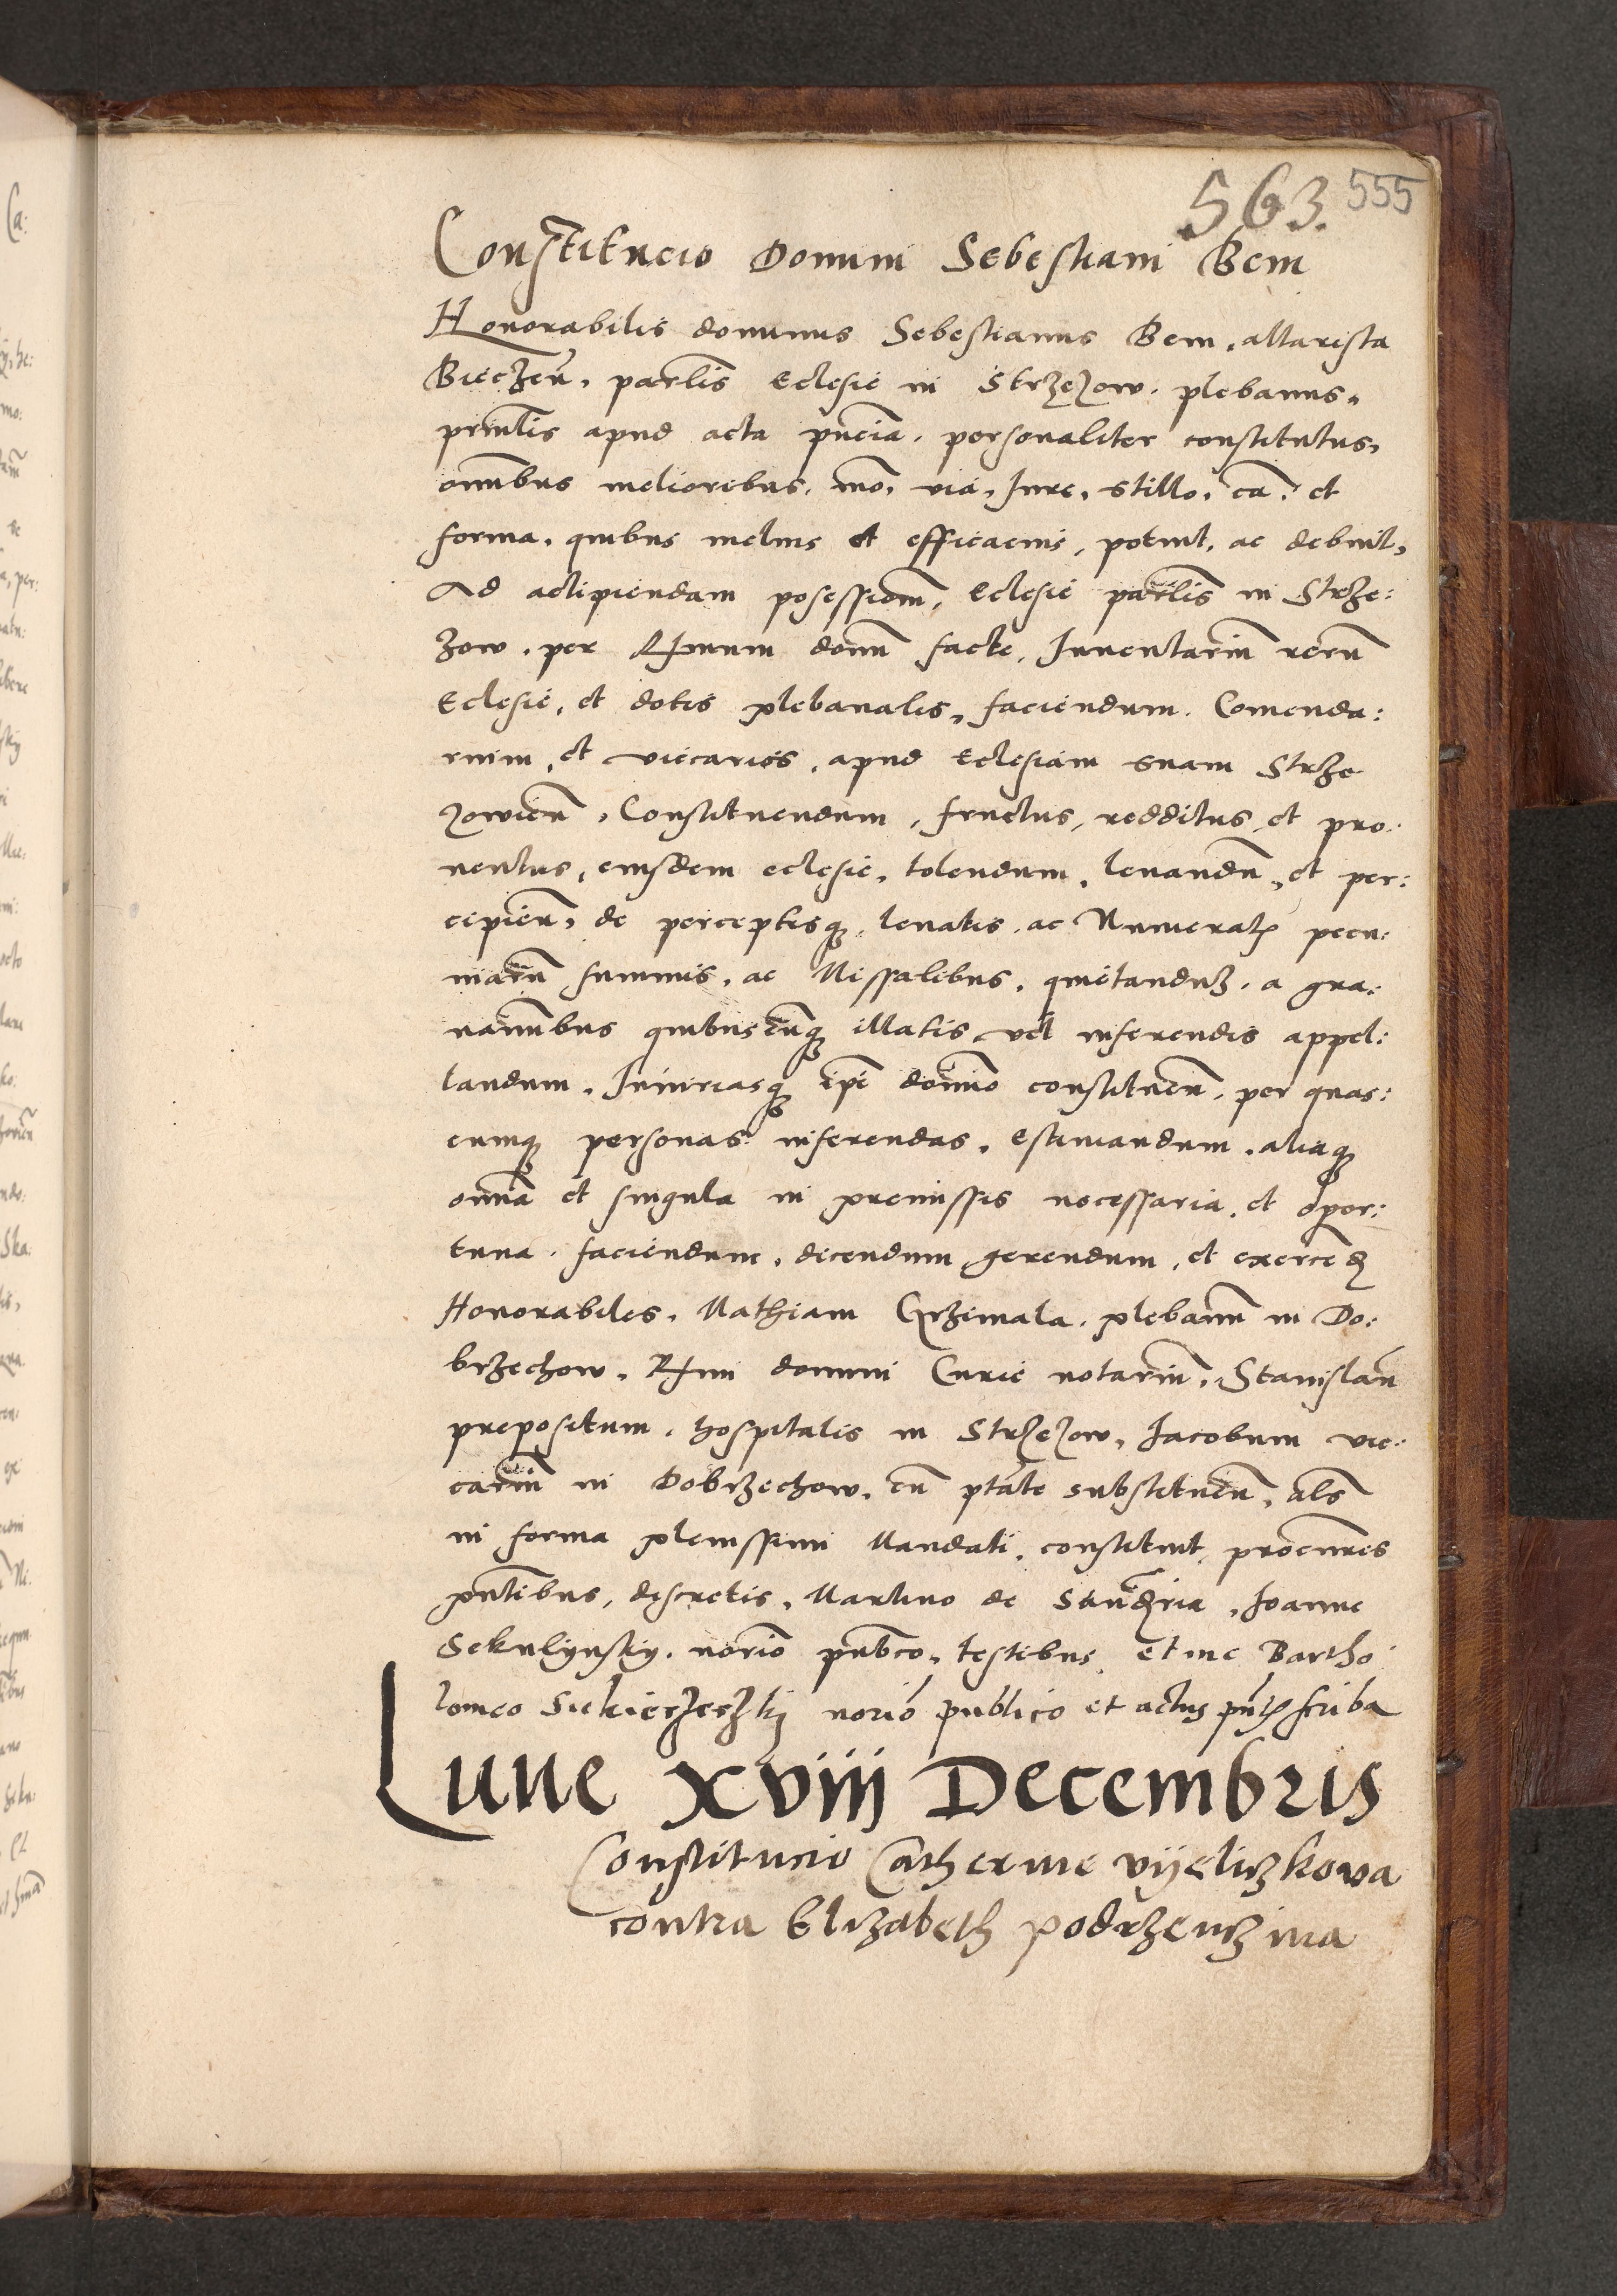 563. 555
Constitucio Domini Sebestiani Bem
Honorabilis dominus Sebestianus Bem, altarista
Bieczeñ, parlis Eclesie in Strzezow, plebanus,
printlis apud acta pñcia, personaliter constitutus,
omnibus melioribus, mō, via, Jure, stillo, cā, et
forma, quibus melius et efficacius, potuit, ac debuit,
Ad accipiendam posessionē, Eclesie parlis in Strze:
zow, per Rmum domū facte, Inuentariū rerū
Eclesie, et dotis plebanalis, faciendum. Comenda:
rium, et viccarios, apud Eclesiam suam Strze
zowieñ, Constituendum, fructus, redditus, et pro:
uentus, eiusdem eclesie, tolendum, leuandū, et per:
cipieñ, de perceptisq3, leuatis, ac Numeratis pecu:
niarū summis, ac Missalibus, quietandu3, a gra:
uaminibus quibuscūq3 illatis, vel inferendis appel:
landum, Iniuriasq3 ipi domino constitueñ, per quas:
cumq3 personas inferendas, estimandum, aliaq3
omnia et singula in premissis necessaria, et opor:
tuna, faciendum, dicendum gerendum, et exercēd
Honorabiles, Mathiam Grzimala, plebanū in Do:
brzechow, Rmi domini Curie notariū, Stanislaū
prepositum, hospitalis in Strzezow, Jacobum vic:
cariū in Dobrzechow, cū ptāte substitueñ, als
in forma plenissimi Mandati, constituit, procuratores
pñtibus, discretis, Martino de Sandria, Joanne
Sekulynsky, norio pubco, testibus, et me Bartho
lomeo Siekierzeczki norio publico et actus pñtis scriba
Lune xviij Decembris
Constitucio Catherine vijeliczkova
contra Elizabeth podrzenczina